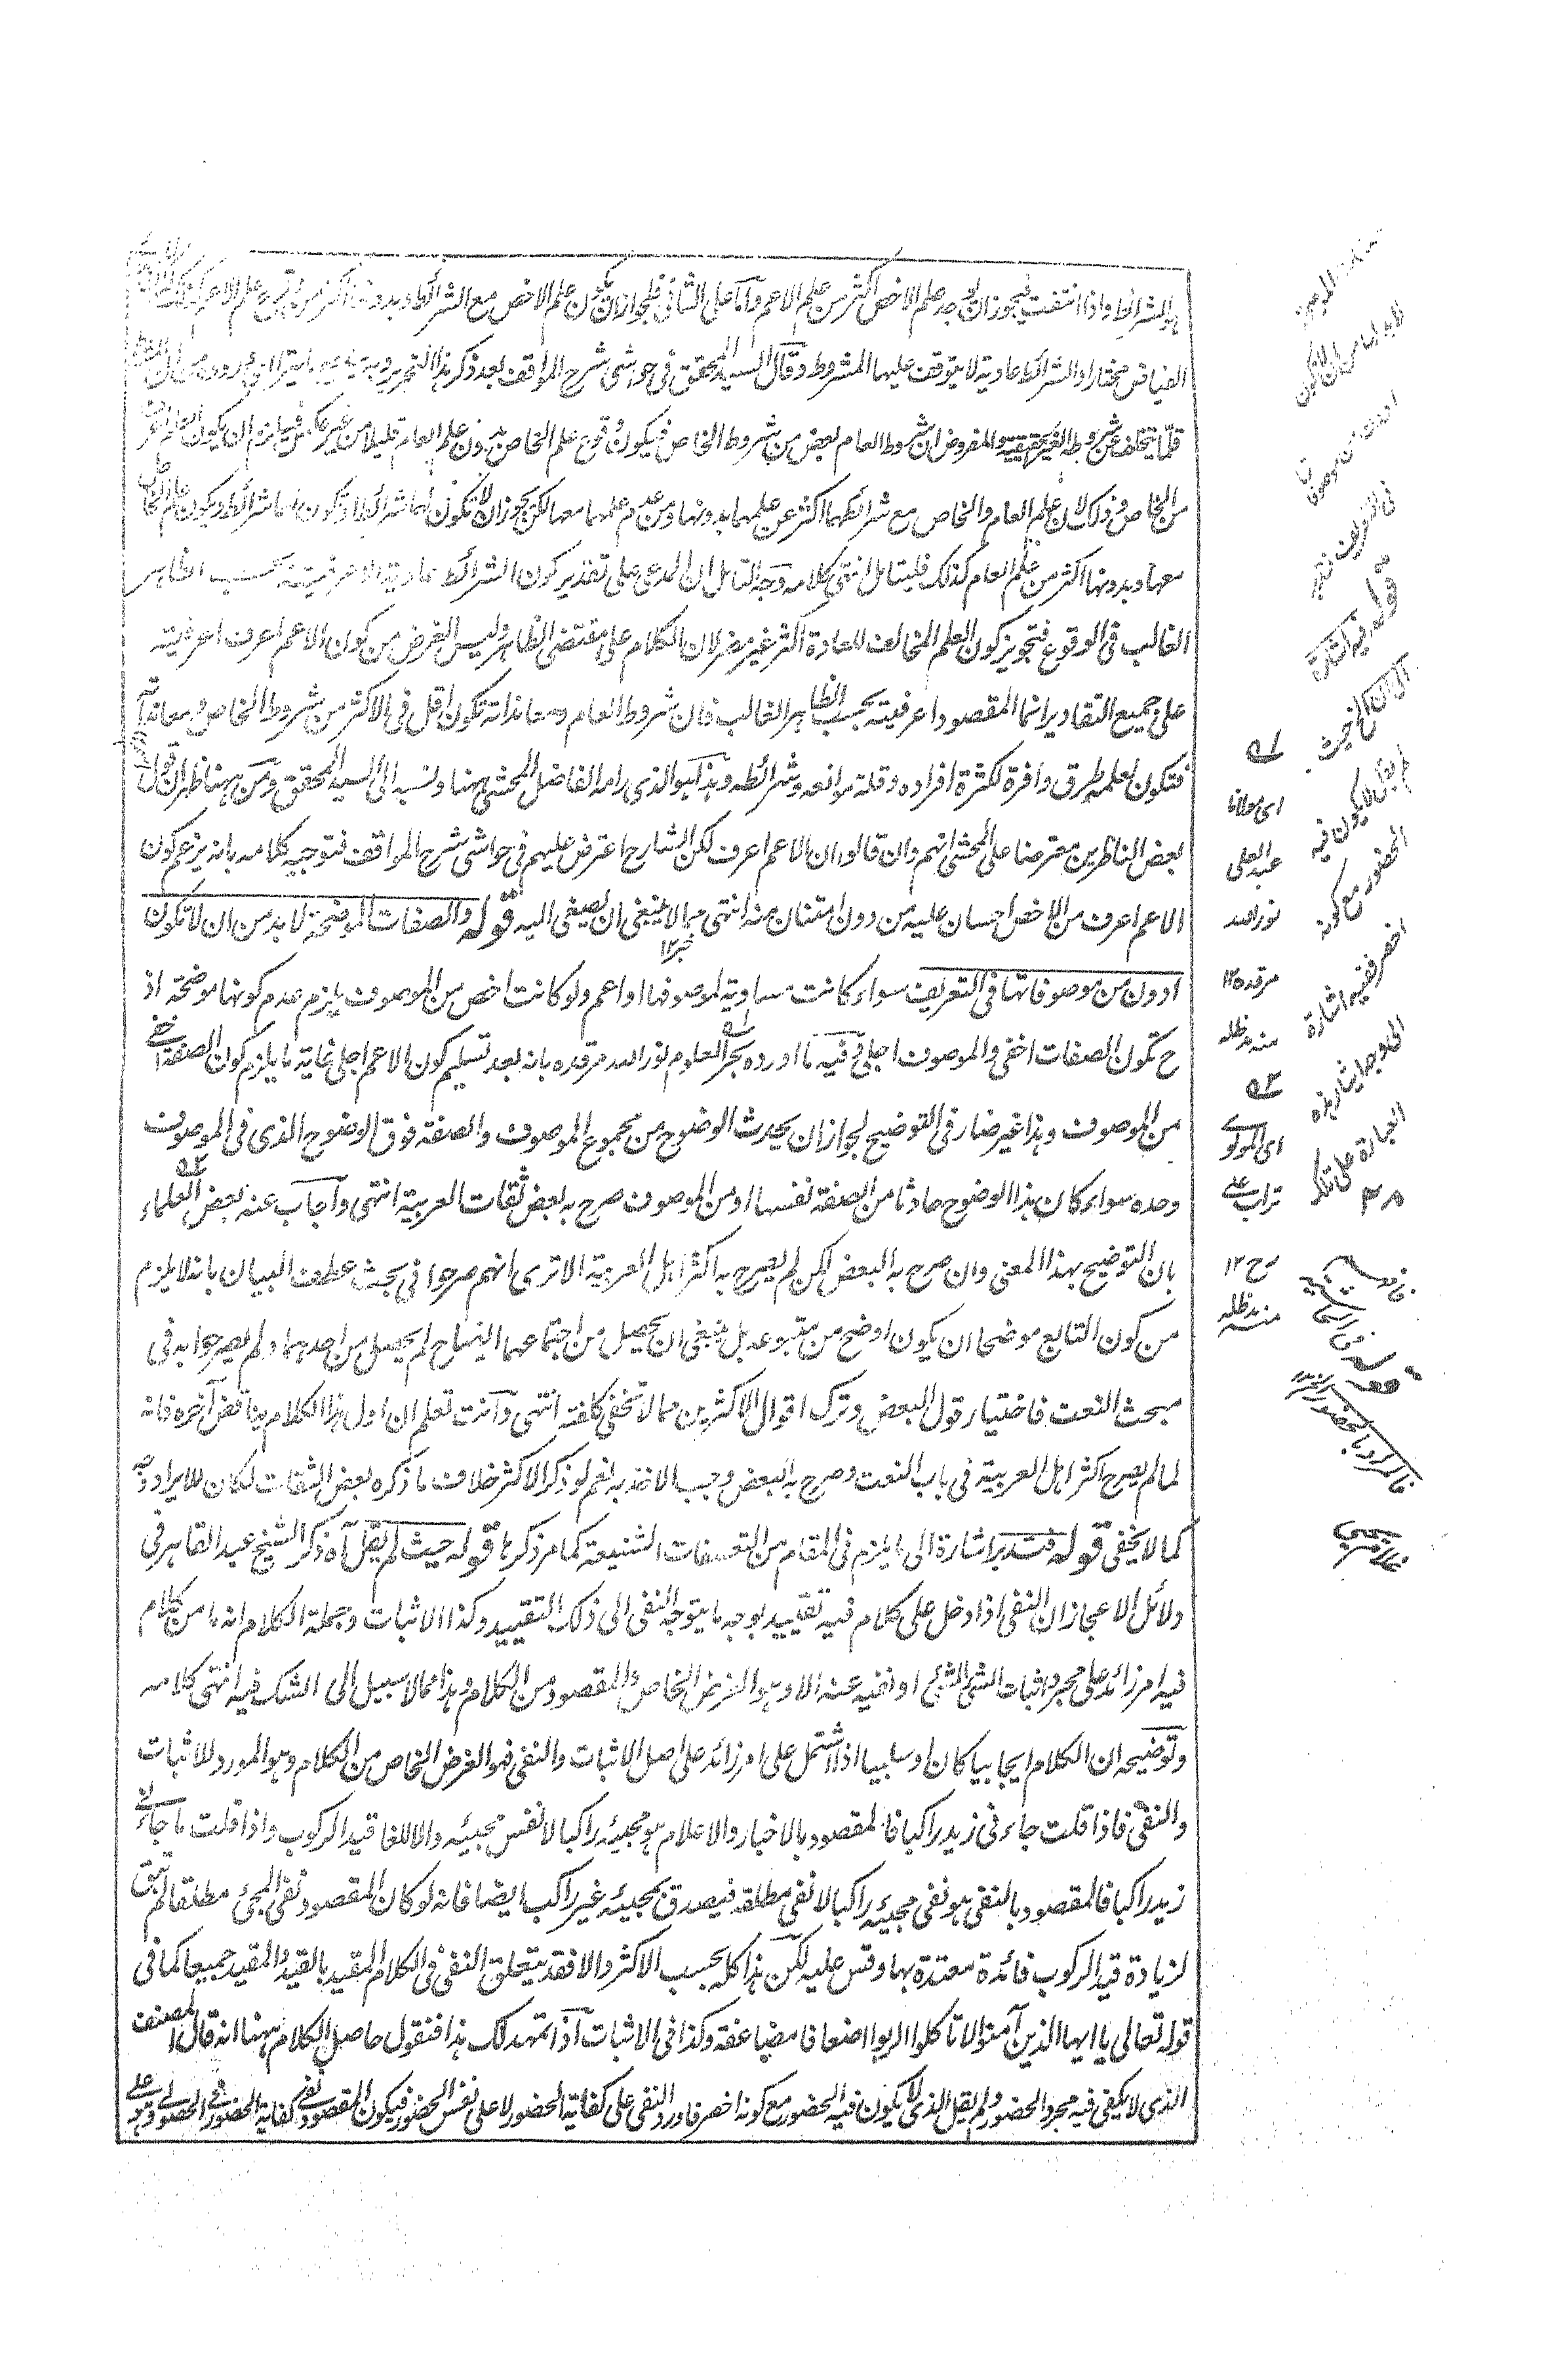 هو الشرائط واذا انتفت فيجوز ان يوجد علم الاخص اكثر من علم الاعم واما على الثانى فلجواز ان يكون علم الاخص مع الشرائط وبدونها اكثر من علم الاعم
الفياض مختار او الشرائط عادية لا يتوقف عليها المشروط وقال السيد المحقق فى حواشى شرح المواقف بعد ذكر هذا التحرير
قلما يتخلف عن شروطه الغير الحقيقية والمفروض ان شروط العام بعض من شروط الخاص فيكون وقوع علم الخاص بدون علم العام قليلا من غير عكس فيلزم ان يكون العلم
من الخاص وذلك لان علم العام والخاص مع شرائطهما اكثر عن علمهما بدونها ومن عدم علمهما معها لكن يجوز ان لا تكون لهما شرائط او تكون لهما شرائط ويكون علم الخاص
معها وبدونها اكثر من علم العام كذلك فليتامل انتهى كلامه وجه التامل ان المدعى على تقدير كون الشرائط عادية الاعرفية بحسب الظاهر
الغالب فى الوقوع فتجويز كون العلم المخالف للعادة اكثر غير مضر لان الكلام على مقتضى الظاهر وليس الغرض من كون الاعم اعرف اعرفيته
على جميع التقادير انما المقصود اعرفيته بحسب الظاهر الغالب فان شروط العام ومعانداته تكون اقل فى الاكثر من شروط الخاص ومعانداته
فتكون لعلمه طرق وافرة لكثرة افراده وقلة موانعه وشرائطه وهذا هو الذى رامه الفاضل المحشى ههنا ونسبه الى السيد المحقق ومن ههنا ظهر ان قول
بعض الناظرين معترضا على المحشى انهم وان قالوا ان الاعم اعرف لكن الشارح اعترض عليهم فى حواشى شرح المواقف فتوجيه كلامه بانه يزعم كون
الاعم اعرف من الاخص احسان عليه من دون امتنان منه انتهى مما لا ينبغى ان يصغى اليه قوله والصفات الموضحة لا بد من ان لا تكون
ادون من موصوفاتها فى التعريف سواء كانت مساوية لموصوفها او اعم ولو كانت اخص من الموصوف يلزم عدم كونها موضحة اذ
ح تكون الصفات اخفى والموصوف اجلى وفيه ما اورده بحر العلوم نور الله مرقده بانه بعد تسليم كون الاعم اجلى غاية ما يلزم كون الصفة اخفى
من الموصوف وهذا غير ضار فى التوضيح لجواز ان يحدث الوضوح من مجموع الموصوف والصفة فوق الوضوح الذى فى الموصوف
وحده سواء كان هذا الوضوح حادثا من الصفة نفسها او من الموصوف صرح به بعض ثقات العربية انتهى واجاب عنه بعض العلماء
بان التوضيح بهذا المعنى وان صرح به البعض لكن لم يصرح به اكثر اهل العربية الا ترى انهم صرحوا فى بحث عطف البيان بانه لا يلزم
من كون التابع موضحا ان يكون اوضح من متبوعه بل ينبغى ان يحصل من اجتماعهما ايضاح لم يحصل من احدهما ولم يصرحوا به فى
مبحث النعت فاختيار قول البعض وترك اقوال الاكثرين مما لا تخفى كلفته انتهى وانت تعلم ان اول هذا الكلام يناقض آخره فانه
لما لم يصرح اكثر اهل العربية فى باب النعت وصرح به البعض وجب الاخذ به نعم لو ذكر الاكثر خلاف ما ذكره بعض الثقات لكان للايراد وجه
كما لا يخفى قوله فتدبر اشارة الى ما يلزم فى المقام من التعسفات الشنيعة كما مر ذكرها قوله حيث لم يقل آه ذكر الشيخ عبد القاهر فى
دلائل الاعجاز ان النفى اذا دخل على كلام فيه تقييد بوجه ما يتوجه النفى الى ذلك التقييد وكذا الاثبات وجملة الكلام انه ما من كلام
فيه امر زائد على مجرد اثبات الشئ للشئ او نفيه عنه الا وهو الغرض الخاص والمقصود من الكلام وهذا مما لا سبيل الى الشك فيه انتهى كلامه
وتوضيحه ان الكلام ايجابيا كان او سلبيا اذا اشتمل على امر زائد على اصل الاثبات والنفى فهو الغرض الخاص من الكلام وهو المورد للاثبات
والنفى فاذا قلت جاءنى زيد راكبا فالمقصود بالاخبار والاعلام هو مجيئه راكبا لا نفس مجيئه والا للغا قيد الركوب واذا قلت ما جاءنى
زيد راكبا فالمقصود بالنفى هو نفى مجيئه راكبا لا نفى مطلقه فيصدق بمجيئه غير راكب ايضا فانه لو كان المقصود نفى المجئ مطلقا لم تبق
لزيادة قيد الركوب فائدة معتدة بها وقس عليه لكن هذا كله بحسب الاكثر والا فقد يتعلق النفى فى الكلام المقيد بالقيد والمقيد جميعا كما فى
قوله تعالى يا ايها الذين آمنوا لا تاكلوا الربوا اضعافا مضاعفة وكذا فى الاثبات اذا تمهد لك هذا فنقول حاصل الكلام ههنا انه قال المصنف
الذى لا يكفى فيه مجرد الحضور ولم يقل الذى لا يكون فيه الحضور مع كونه اخصر فاورد النفى على كفاية الحضور لا على نفس الحضور فيكون المقصود نفى كفاية الحضور فى الحصولى وهو
اى مولانا
عبد العلى
نور الله
مرقده ١٢
منه مد ظله
اى المولوى
تراب على
رح ١٢
منه مد ظله
قوله فيه اشارة
لم يقل لا يكون فيه
الحضور مع كونه
اخصر ففيه اشارة